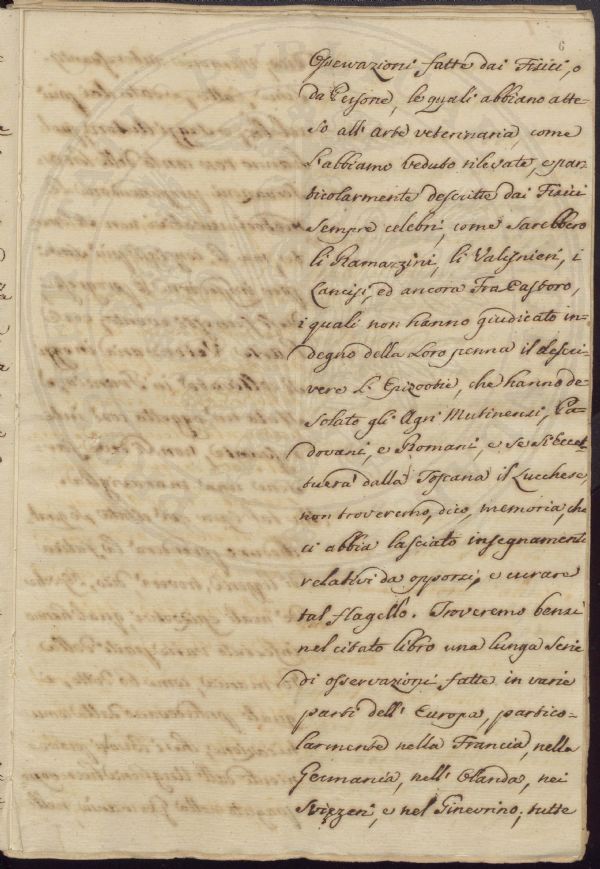 6
Operazioni fatte dai Fisici, o
da Persone, le quali abbiano atte-
so all' arte veterinaria, come
l'abbiamo veduto rilevate, e par-
ticolarmente descritte dai Fisici
sempre celebri, come sarebbero
li Ramazzini, li Valisnieri, i
Lancisi, ed ancora Fra Castoro,
i quali non hanno giudicato in-
degno della Loro penna il descri-
vere L'Epizootie, che hanno de-
solato gli Agri Mutinensi, Pa-
dovani, e Romani, e se si eccet-
tuerà dalla Toscana il Lucchese,
non troveremo, dico, memoria, che
ci abbia lasciato insegnamenti
relativi da opporsi, e curare
tal flagello. Troveremo bensi
nel citato libro una lunga serie
di osservazioni fatte in varie
parti dell' Europa, partico-
larmente nella Francia, nella
Germania, nell' Olanda, nei
Svizzeri, e nel Ginevrino; tutte